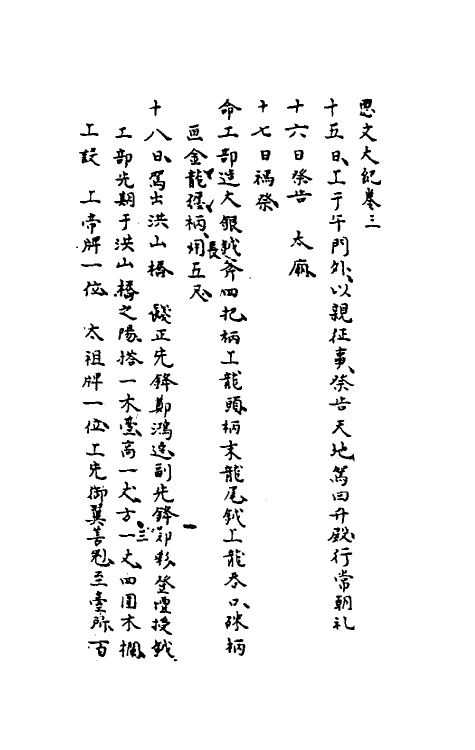 思文大紀卷三
十五日、上于午門外、以親征事、祭告天地、駕回升殿、行常朝礼
十六日祭告　太廟、
十七日禡祭、
命工部造大銀鉞斧四把柄上龍頭、柄末龍尾鉞上龍吞口、硃柄
画金龍纏柄、長用五尺
十八日、駕出洪山橋　餞正先鋒鄭鴻逵、副先鋒鄭彩登壇授鉞、
工部先期于洪山橋之陽、搭一木臺、高一丈、方一丈三四圍木欄、
上設　上帝牌一位、太祖牌一位、上先御翼善冠、至臺所、百